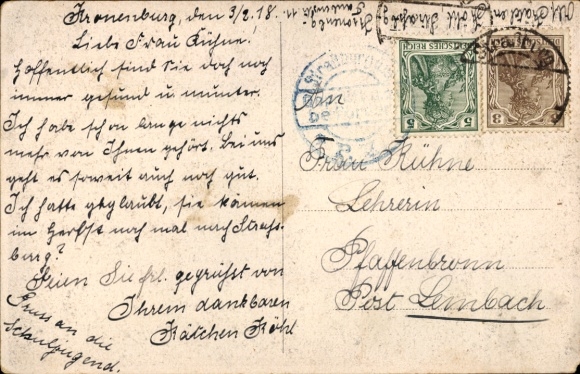 Kronenburg, den 3/2.18.
Liebe Frau Kühne!
Hoffentlich sind Sie doch noch
immer gesund u. munter.
Ich habe schon lange nichts
mehr von Ihnen gehört. Bei uns
geht es soweit auch noch gut.
Ich hatte geglaubt, sie kämen
im Herbst noch mal nach Strass-
burg?
Seien Sie frl. gegrüsst von
Ihrem dankbaren
Kätchen Köhl
Gruss an die
Schuljugend.
Abs. Kätchen
Köhl Strassbg.
Kronenbg.
DEUTSCHES REICH
5 5
3
Frau Kühne
Lehrerin
Pfaffenbronn
Post Lembach